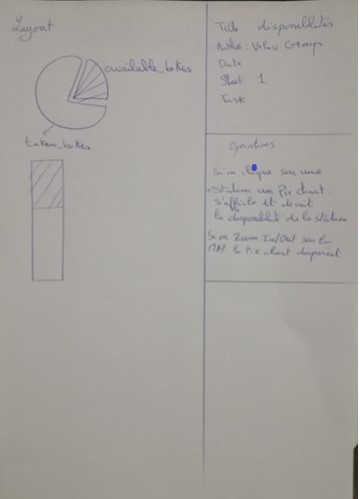 Layout
available_bikes
taken_bikes
Title disponibilités
Author: Velov Group
Date
Sheet 1
Task
Operations
Si on clique sur une
station un Pie chart
s'affiche et decrit
la disponibilité de la station
Si on Zoom In/Out sur la
MAP le Pie chart disparait